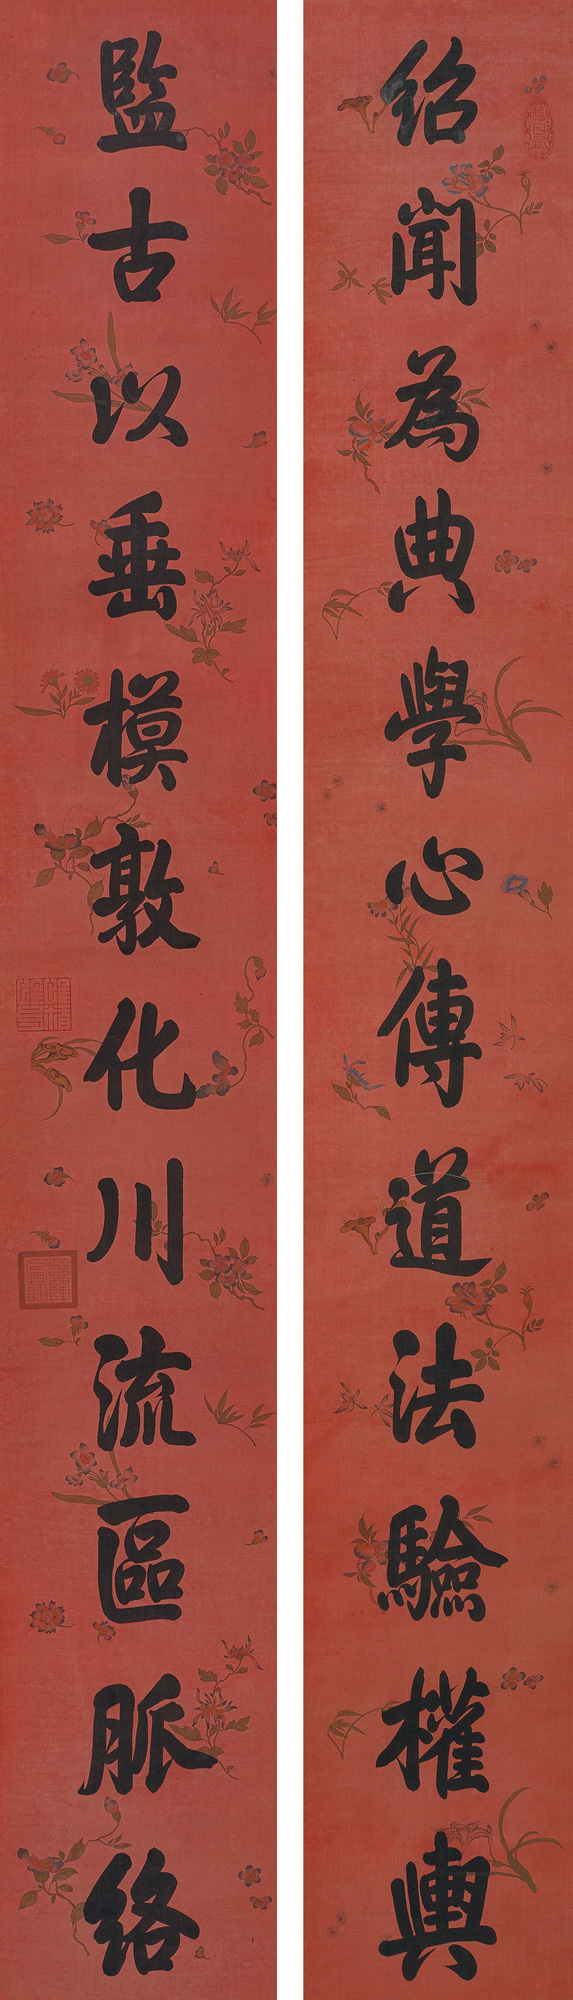 紹聞為典學心傳道法驗權輿
監古以垂模敦化川流區脈絡